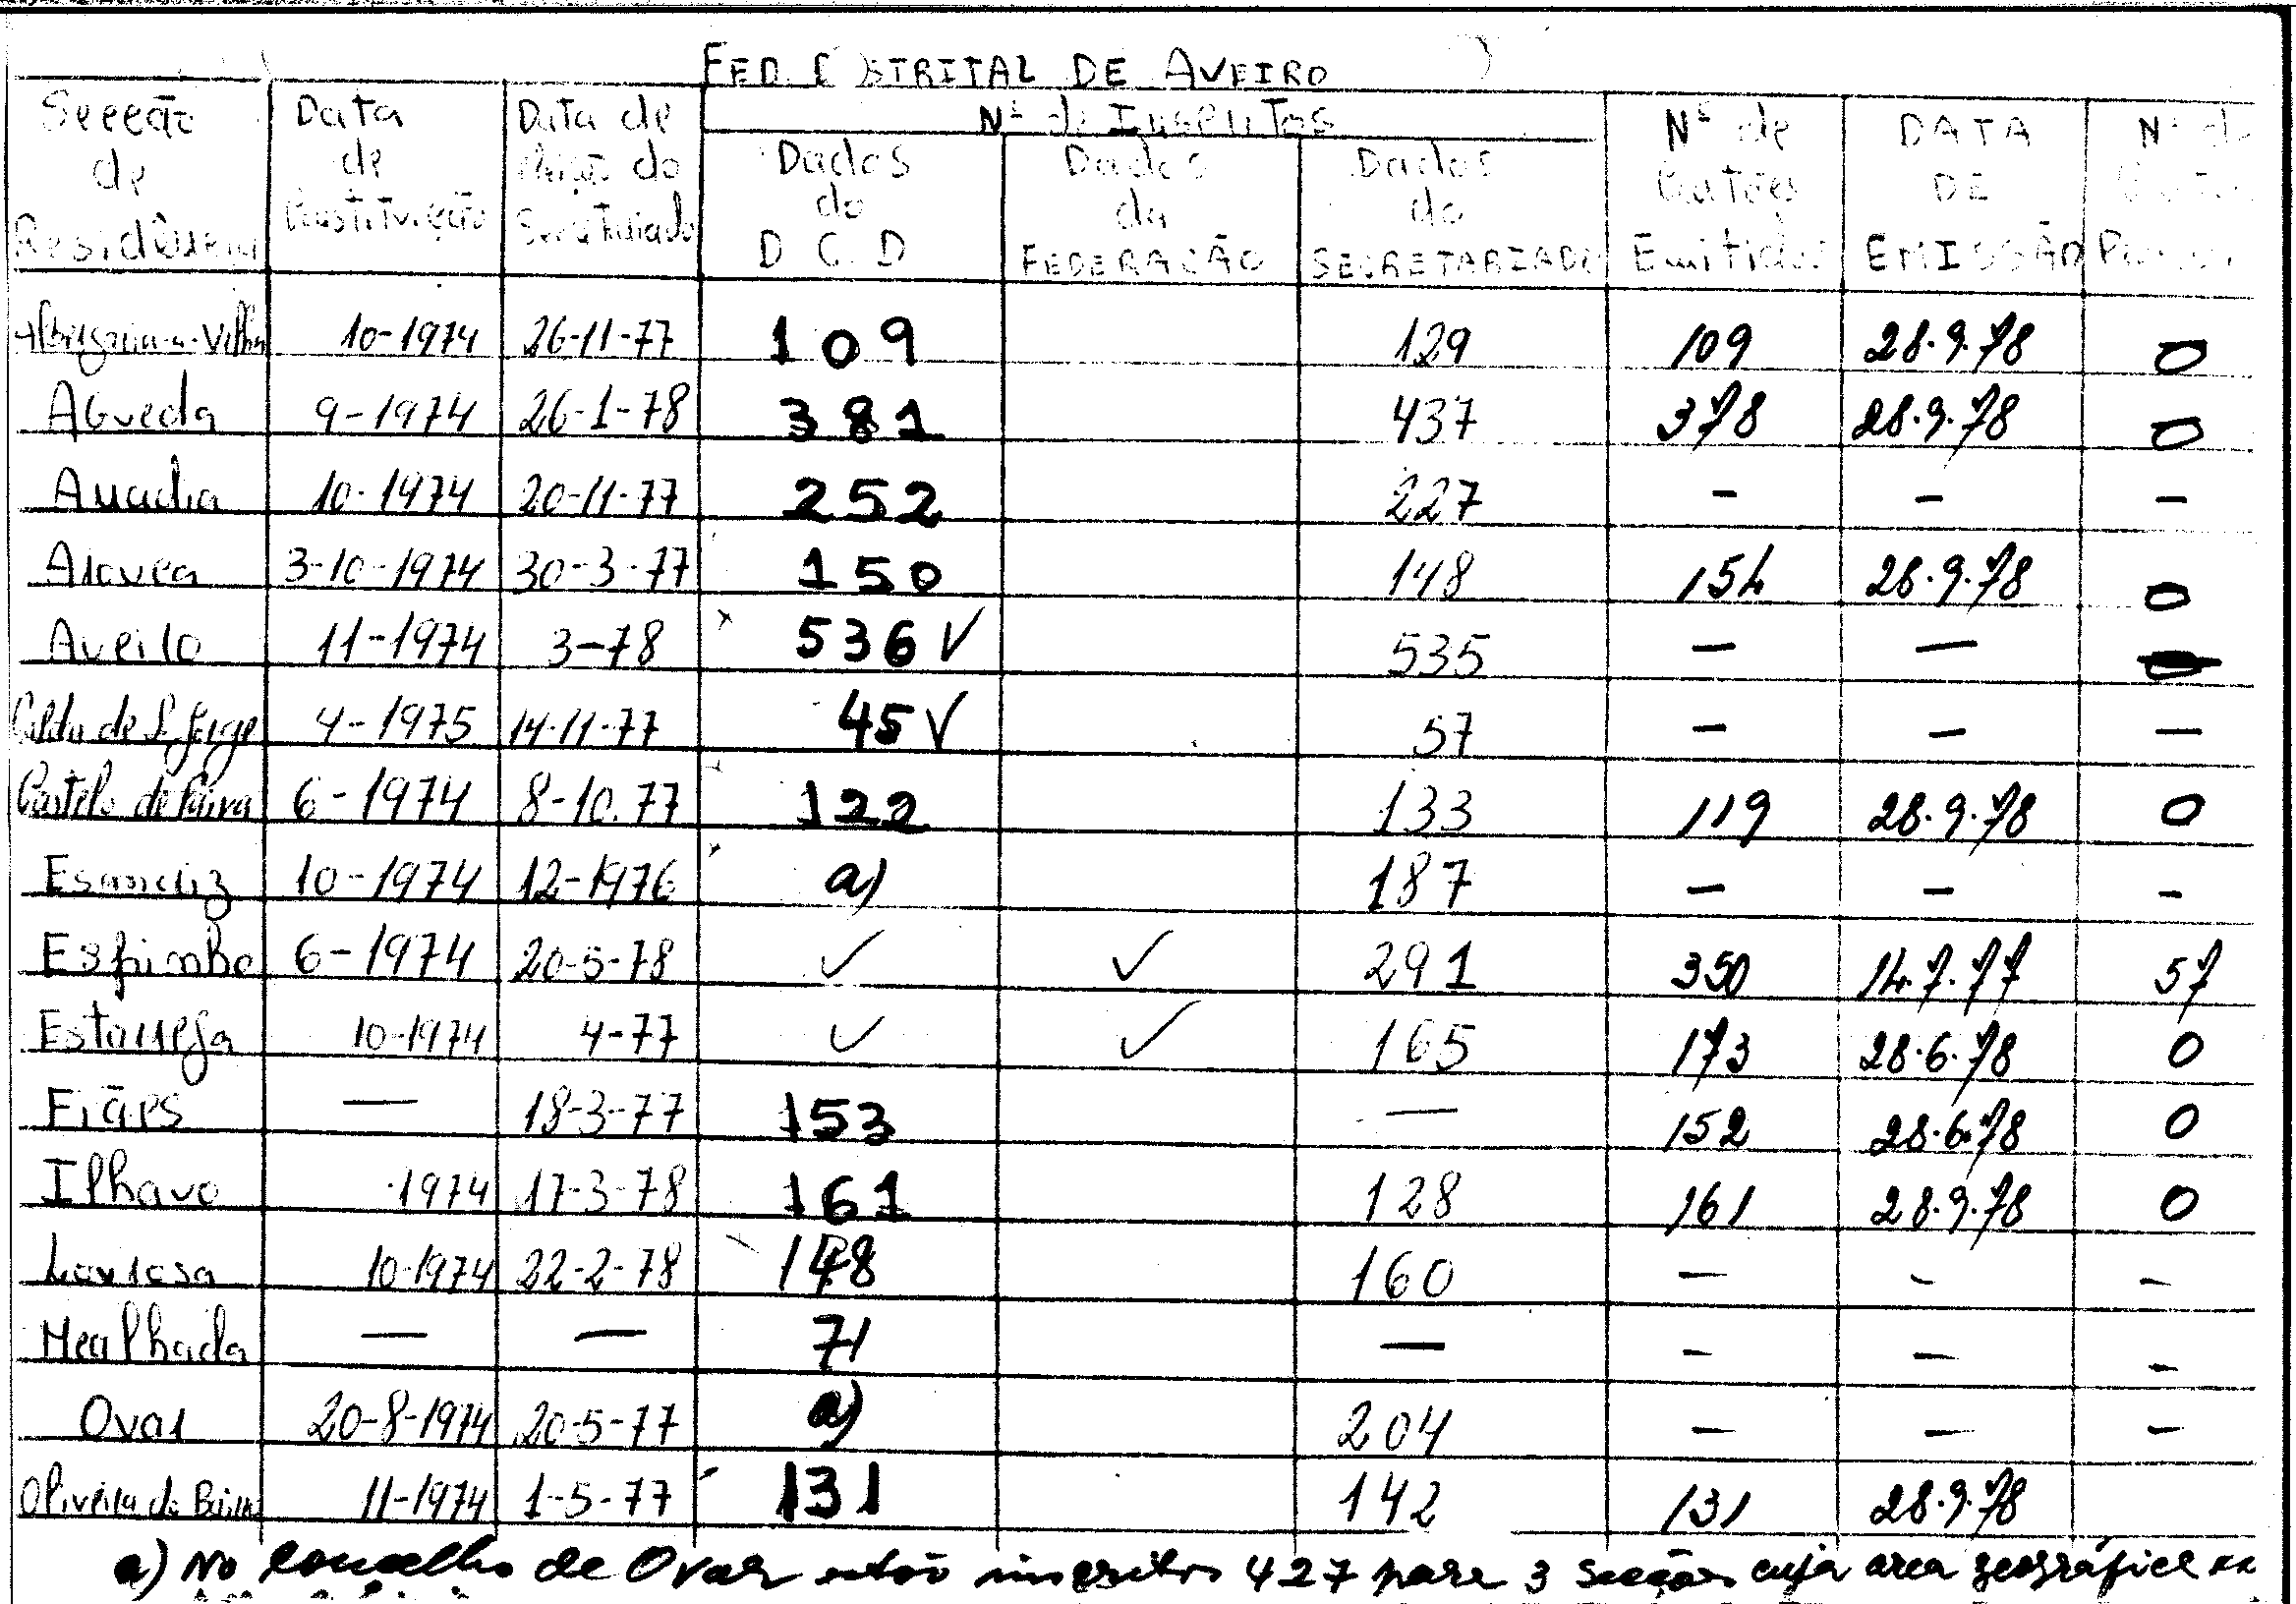 FED. DISTRITAL DE AVEIRO
Secção de Residência | Data de Constituição | Data de Eleição do Secretariado | Nº de Inscritos | Nº de Cartões Emitidos | DATA DE EMISSÃO | Nº de
Dados do D C. D | Dados da FEDERAÇÃO | Dados do SECRETARIADO
Albergaria-a-Velha 10-1974 26-11-77 109 129 109 28.9.78 0
AGueda 9-1974 26-1-78 381 437 378 28.9.78 0
Anadia 10-1974 20-11-77 252 227 - - -
Arouca 3-10-1974 30-3-77 150 148 154 28.9.78 0
Aveiro 11-1974 3-78 536 ✓ 535 - -
Caldas de S. Jorge 4-1975 14-11-77 45 ✓ 57 - - -
Castelo de Paiva 6-1974 8-10.77 122 133 119 28.9.78 0
Esmoriz 10-1974 12-1976 a) 187 - - -
Espinho 6-1974 20-5-78 ✓ ✓ 291 350 14.7.77 57
Estarreja 10-1974 4-77 ✓ ✓ 165 173 28.6.78 0
Fiães - 18-3-77 153 - 152 28.6.78 0
Ilhavo 1974 17-3-78 161 128 161 28.9.78 0
Lourosa 10-1974 22-2-78 148 160 - - -
Mealhada - - 71 - - - -
Ovar 20-8-1974 20-5-77 a) 204 - - -
Oliveira do Bairro 11-1974 1-5-77 131 142 131 28.9.78
a) No Concelho de Ovar estão inscritos 427 para 3 Secções cuja area geográfica